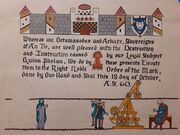 Whereas we, Ortamanoden and Arbayt, Sovereigns
of An Tir, are well pleased with the Destruction
and Instruction caused by our Loyal Subject
Quinn Phelan, We do by these presents Elevate
them to the Right Noble Order of the Mark,
done by Our Hand and Seal this 18 day of October,
A.S. 60